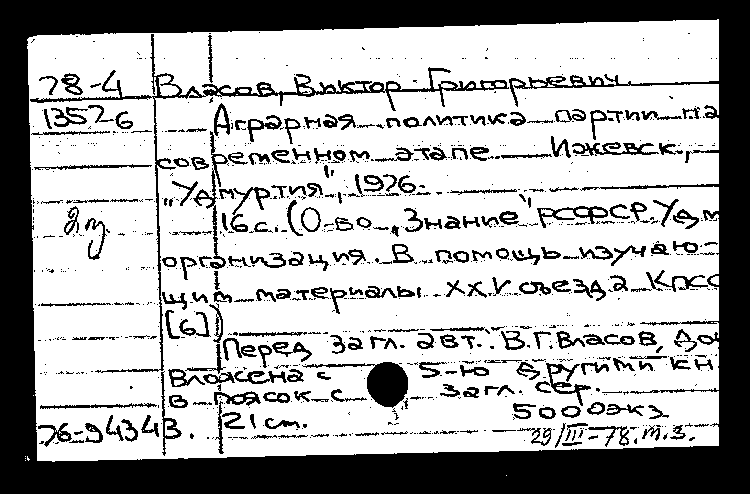 78-4 Власов, Виктор Григорьевич.
1357-6 Аграрная политика партии на
современном этапе Ижевск,
"Удмуртия", 1976.
16с. (О-во „Знание" РСФСР. Удм
организация. В помощь изучаю-
щим материалы XXV съезда КПСС
[6])
Перед загл. авт.: В.Г.Власов, до
Вложена с 5-ю другими кн.
в поясок с загл. сер.
21 см. 5000экз
76-94343.
29/III-78. т.з.